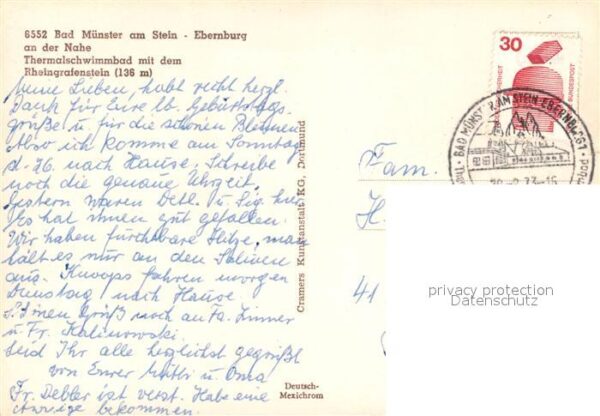 6552 Bad Münster am Stein - Ebernburg
an der Nahe
Thermalschwimmbad mit dem
Rheingrafenstein (136 m)
Meine Lieben, habt recht herzl.
Dank für Eure lb. Geburtstags-
grüße u. für die schönen Blumen
Also ich komme am Sonntag
d. 26. nach Hause. Schreibe
noch die genaue Uhrzeit.
Gestern waren Detl. u. Sig. hier
Es hat ihnen gut gefallen.
Wir haben furchtbare Hitze, man
hält es nur an den Salinen
aus. Knoops fahren morgen
Dienstag nach Hause
Einen Gruß noch an Fa. Zimmer
u. Fr. Kalinowski.
Seid Ihr alle herzlichst gegrüßt
von Eurer Mutti u. Oma
Fr. Debler ist verst. Habe eine
Anzeige bekommen.
Cramers Kunstanstalt KG, Dortmund
Deutsch-
Mexichrom
30
DEUTSCHE BUNDESPOST
BAD MÜNSTER AM STEIN-EBERNBURG 1
73-16
Fam.
H
41
privacy protection
Datenschutz